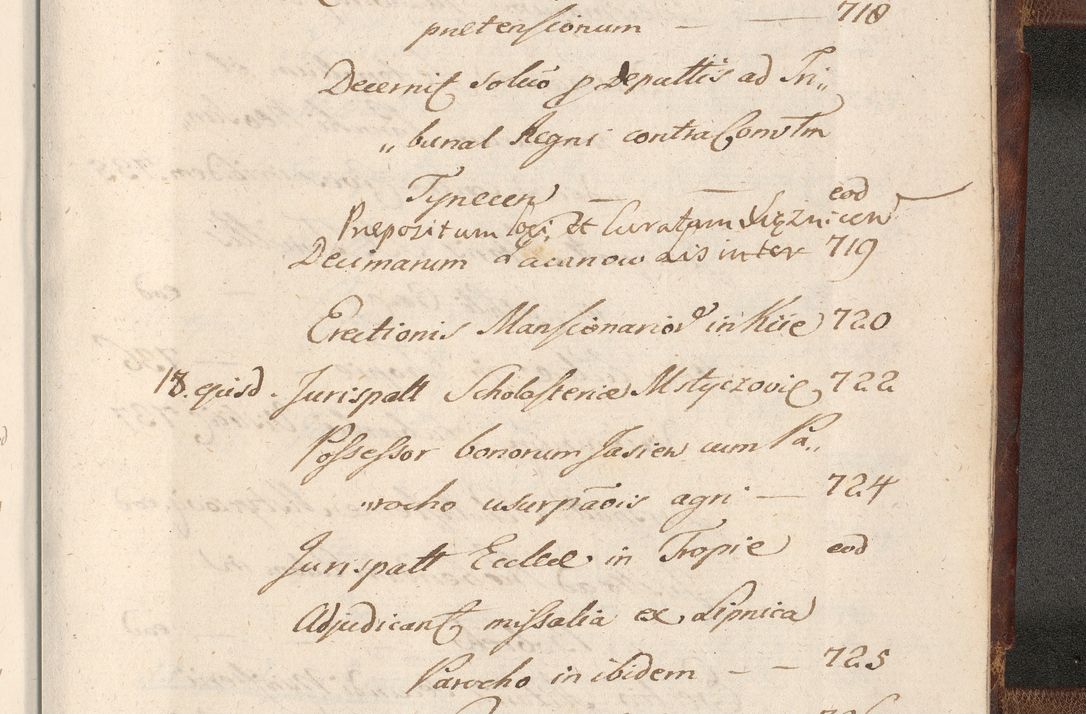 prætensionum — — 718
Decernit solvo p Deputtis ad Tri„
„bunal Regni contra Convtm
Tynecen — — eod
Præpositum loci et Curatum Xiąznicen
Decimarum Lacunow dis inter 719
Erectionis Mansionarior in Kiie 720
18. ejusd. Jurispatt Scholasteriæ Mstyczovie 722
Possessor bonorum Jasien cum Pa„
„rocho usurpaois agri — 724
Jurispatt Ecclæ in Tropie eod
Adjudicant missalia ex Lipnica
Parocho in ibidem — — 725